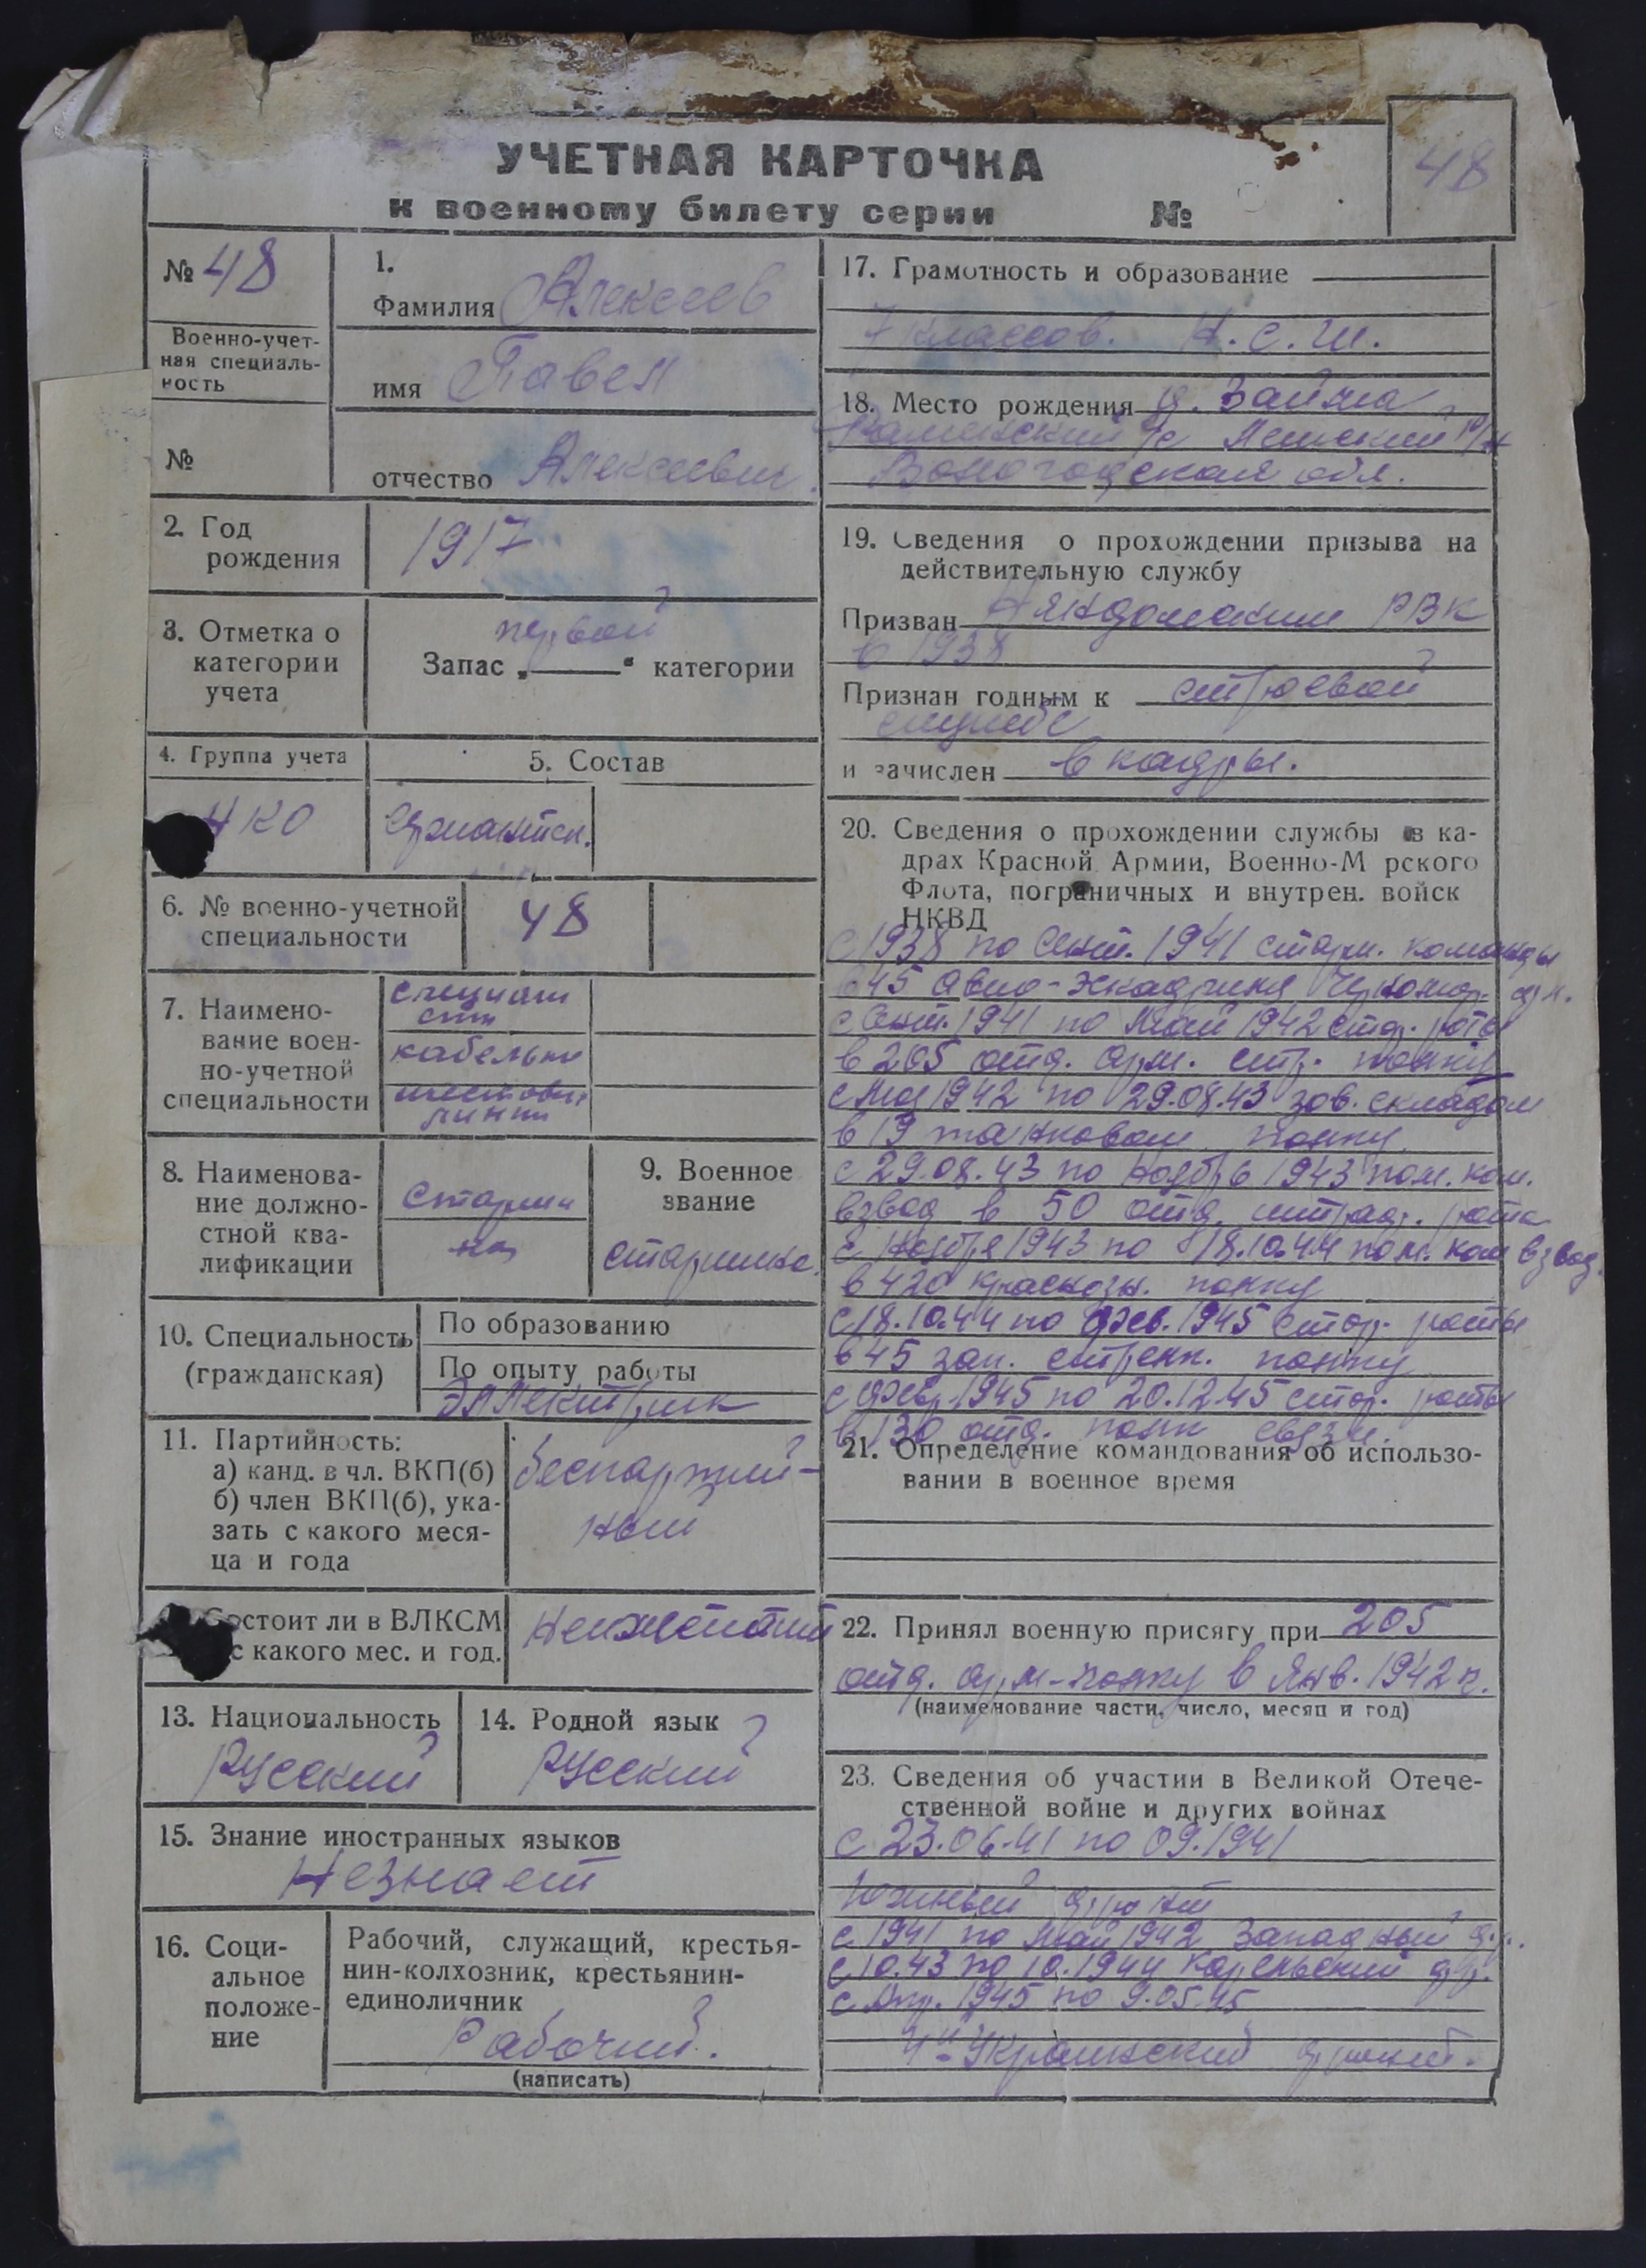 УЧЕТНАЯ КАРТОЧКА
к военному билету серии №
48
№ 48
Военно-учет-
ная специаль-
ность
№
1.
Фамилия Алексеев
имя Павел
отчество Алексеевич.
2. Год
рождения
1917
3. Отметка о
категории
учета
первой
Запас „ “ категории
4. Группа учета
НКО
5. Состав
сержантск.
6. № военно-учетной
специальности
48
7. Наимено-
вание воен-
но-учетной
специальности
специали
сты
кабельно
шестовых
линии
8. Наименова-
ние должно-
стной ква-
лификации
старши
на
9. Военное
звание
старшина.
10. Специальность
(гражданская)
По образованию
По опыту работы
Эллектрик
11. Партийность:
а) канд. в чл. ВКП(б)
б) член ВКП(б), ука-
зать с какого меся-
ца и года
беспартий-
ный
Состоит ли в ВЛКСМ
с какого мес. и год.
13. Национальность
Русский
14. Родной язык
Русский
15. Знание иностранных языков
Незнает
16. Соци-
альное
положе-
ние
Рабочий, служащий, крестья-
нин-колхозник, крестьянин-
единоличник
Рабочий.
(написать)
17. Грамотность и образование
7 классов. Н.С.Ш.
18. Место рождения д. Займа
с/с р/н
Вологодская обл.
19. Сведения о прохождении призыва на
действительную службу
Призван Няндомским РВК
в 1938
Признан годным к строевой
службе
и зачислен в кадры.
20. Сведения о прохождении службы в ка-
драх Красной Армии, Военно-М рского
Флота, пограничных и внутрен. войск
НКВД
с 1938 по Сент. 1941 старш. команды
в 45 авио-эскадрилия Черномор. фл.
с Сент. 1941 по Май 1942 стар. роты
в 205 отд. арм. стр. полку
с Мая 1942 по 29.08.43 зав. складом
в 19 танковом полку
с 29.08.43 по Ноябрь 1943 пом. ком.
взвод в 50 отд. штраф. рота
с Ноября 1943 по 18.10.44 пом. ком взвод.
в 420 краснозн. полку
с 18.10.44 по Фев. 1945 стар. роты
в 45 зап. стрелк. полку
с Февр. 1945 по 20.12.45 стар. роты
в 130 отд. полк связи.
21. Определение командования об использо-
вании в военное время
22. Принял военную присягу при 205
отд. арм-полку в Янв. 1942 г.
(наименование части, число, месяц и год)
23. Сведения об участии в Великой Отече-
ственной войне и других войнах
с 23.06.41 по 09.1941
Южный фронт
с 1941 по Май 1942 Западный ф.
с 10.43 по 10.1944 Карельский фр.
с Апр. 1945 по 9.05.45
4й Украинский фронт.